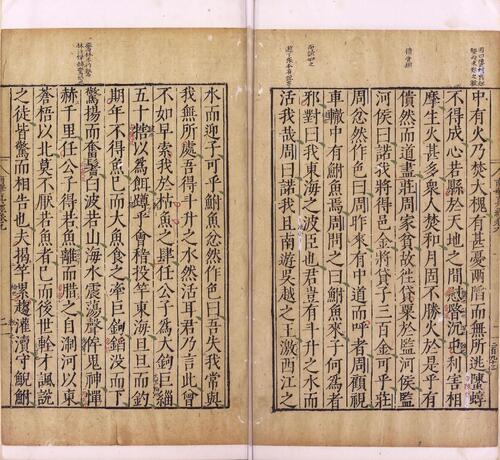 中有火乃焚大槐有甚憂兩陷而無所逃螴蜳
不得成心若縣於天地之間慰暋沉屯利害相
摩生火甚多衆人焚和月固不勝火於是乎有
僓然而道盡莊周家貧故往貸粟於監河侯監
河侯曰諾我將得邑金將貸子三百金可乎莊
周忿然作色曰周昨來有中道而呼者周顧視
車轍中有鮒魚焉周問之曰鮒魚來子何爲者
邪對曰我東海之波臣也君豈有斗升之水而
活我哉周曰諾我且南遊吳越之王激西江之
水而迎子可乎鮒魚忿然作色曰吾失我常與
我無所處吾得斗升之水然活耳君乃言此曾
不如早索我於枯魚之肆任公子爲大鉤巨緇
五十犗以爲餌蹲乎會稽投竿東海旦旦而釣
期年不得魚已而大魚食之牽巨鉤錎没而下
驚揚而奮鬐白波若山海水震蕩聲侔鬼神憚
赫千里任公子得若魚離而腊之自淛河以東
蒼梧以北莫不厭若魚者已而後世輇才諷說
之徒皆驚而相告也夫揭竿累趣灌瀆守鯢鮒